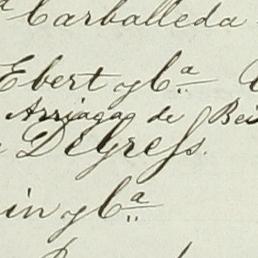 Carballeda
Ebert y Cª
Arriaga de Bei
Degress.
in y Cª